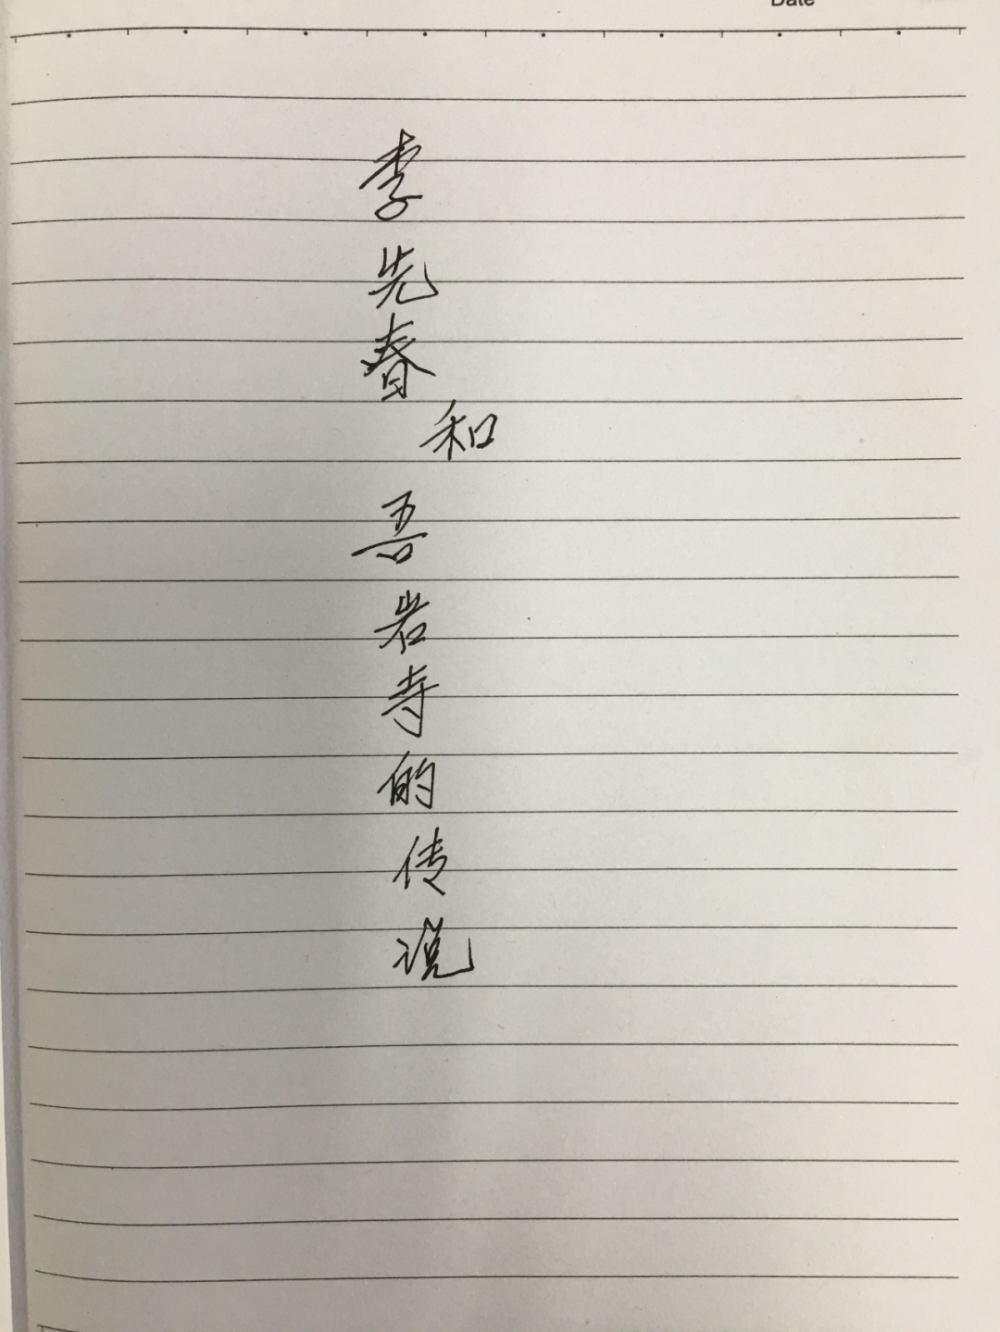 Date
李先春
和
吾岩寺的传说